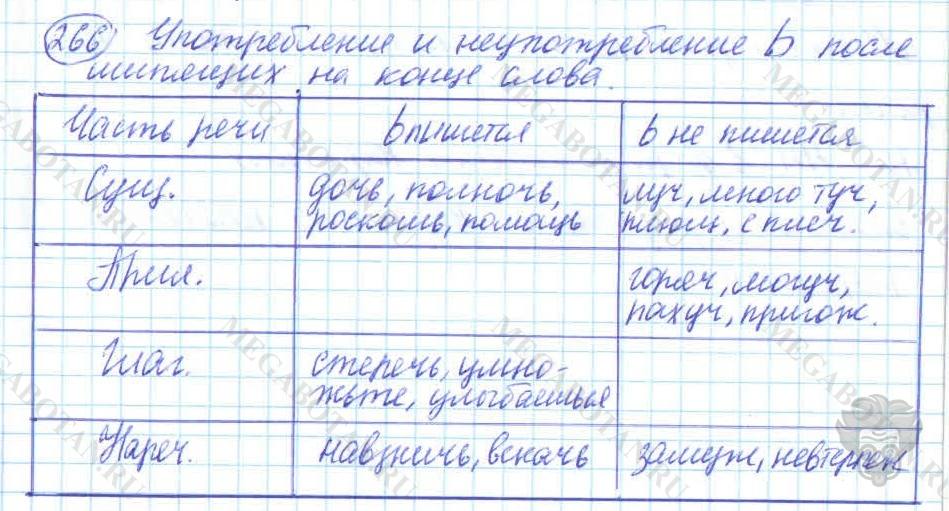 266 Употребление и неупотребление ь после
шипящих на конце слова.
Часть речи ь пишется ь не пишется
Сущ. дочь, полночь, луч, много туч,
роскошь, помощь плющ, с плеч.
Прил. горяч, могуч,
пахуч, пригож.
Глаг. стеречь, умно-
жьте, улыбаешься
Нареч. навзничь, вскачь замуж, невтерпёж
MEGABOTAN.RU